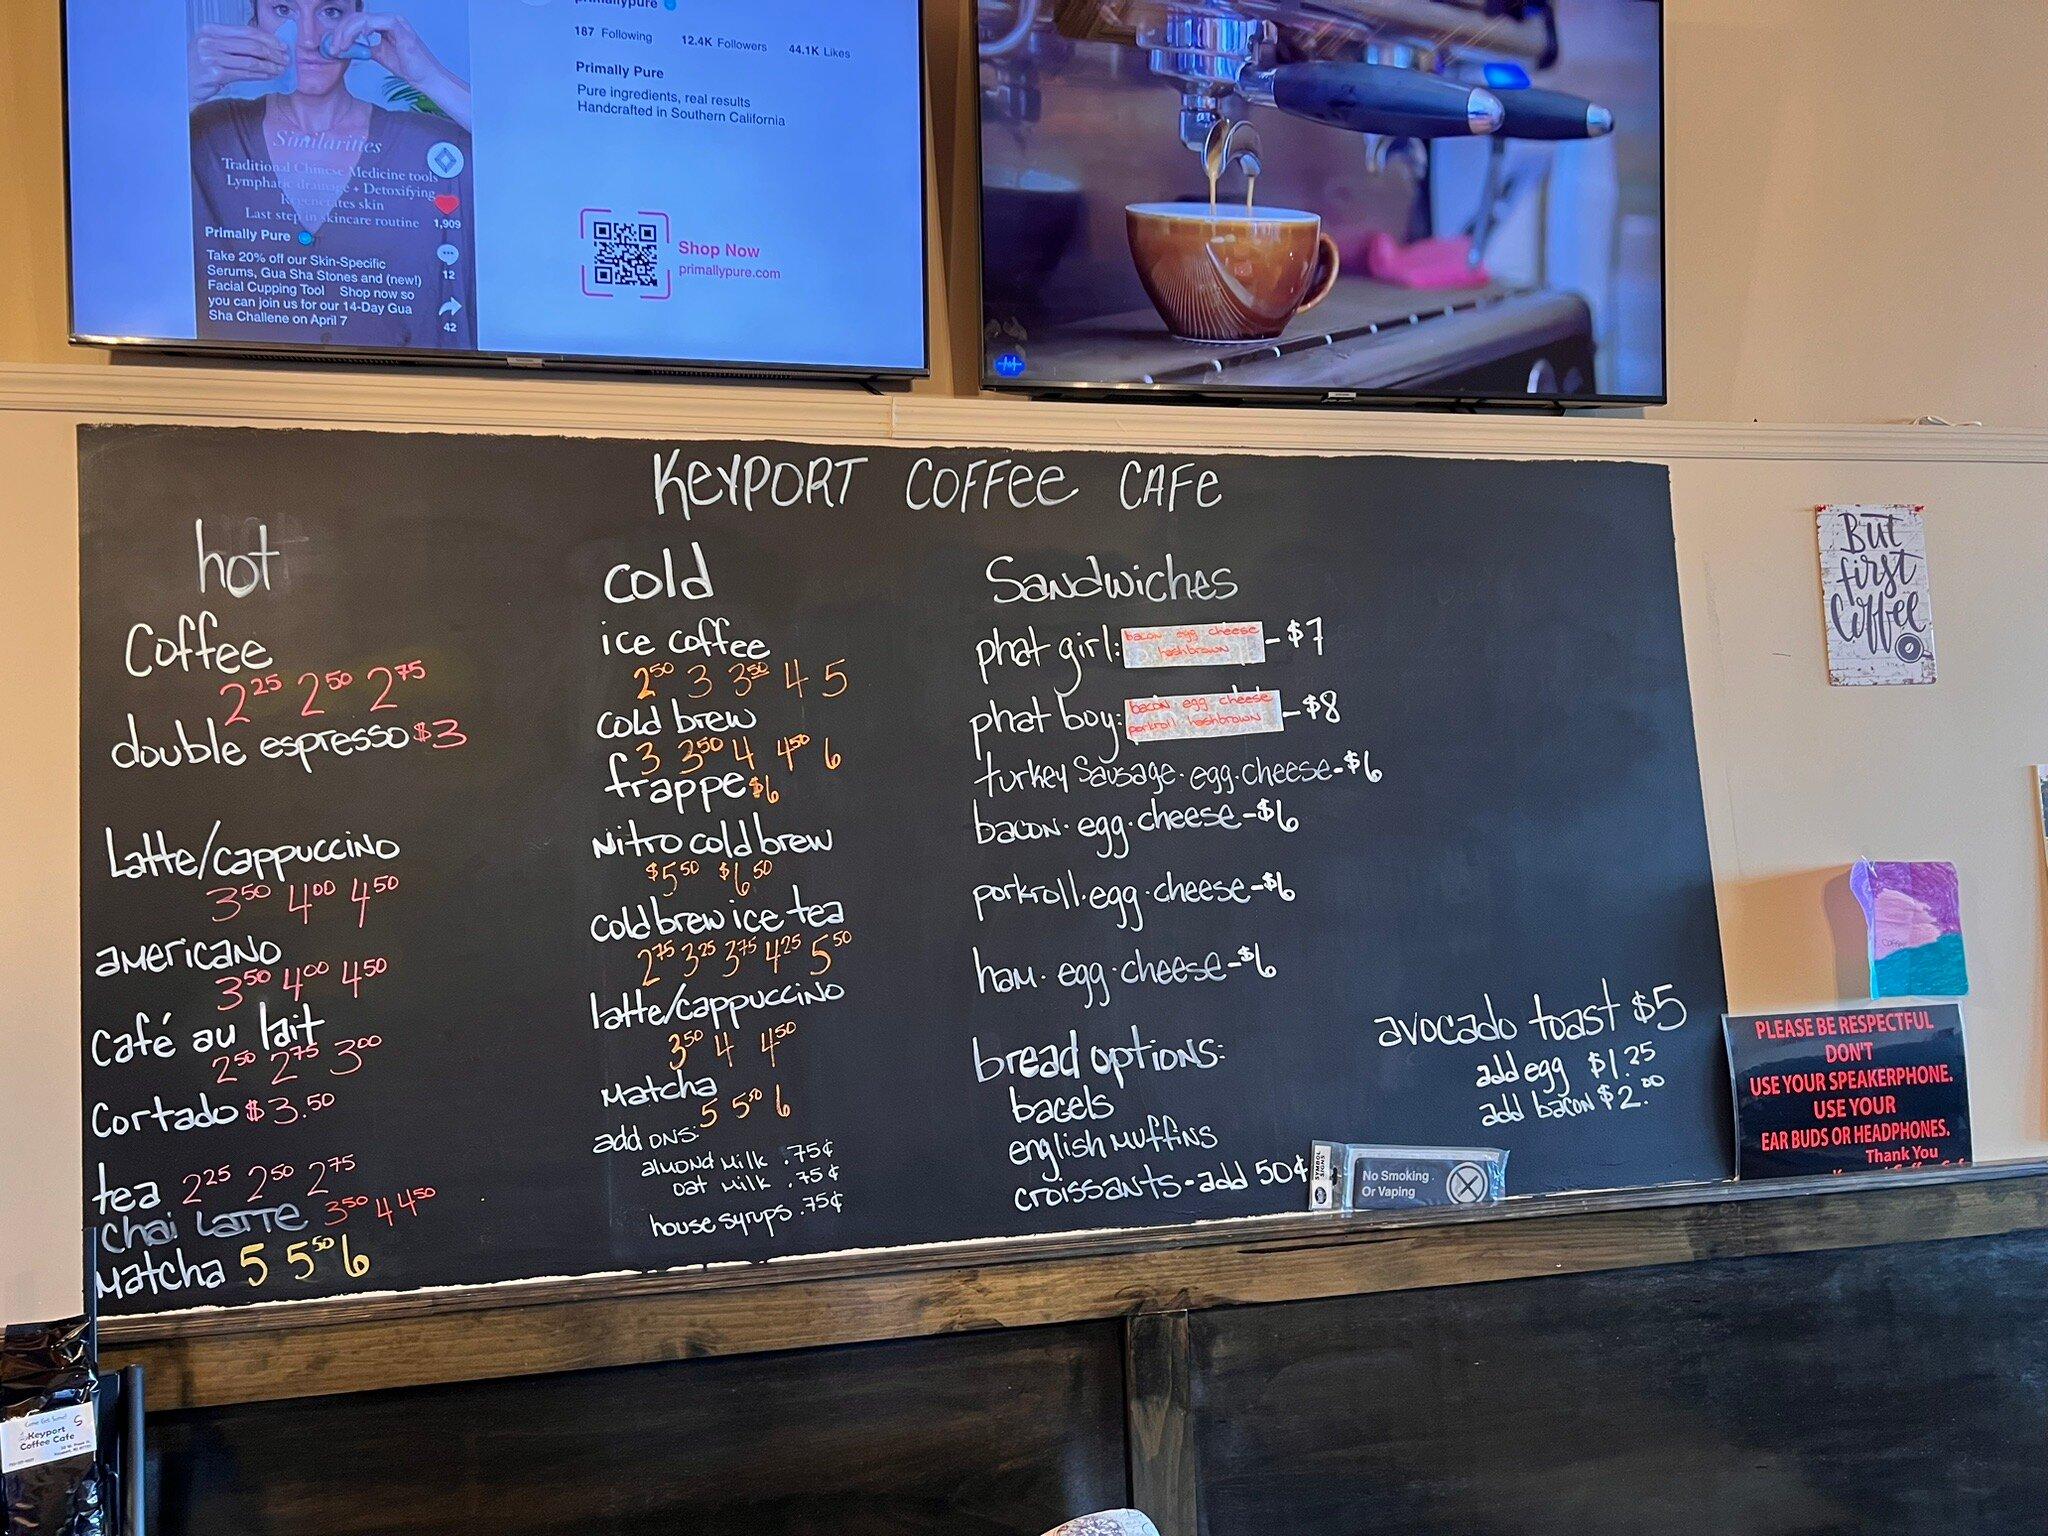 primallypure
187 Following 12.4K Followers 44.1K Likes
Primally Pure
Pure ingredients, real results
Handcrafted in Southern California
Shop Now
primallypure.com
Similarities
Traditional Chinese Medicine tools
Lymphatic drainage + Detoxifying
Regenerates skin
Last step in skincare routine
1,909
Primally Pure
Take 20% off our Skin-Specific
Serums, Gua Sha Stones and (new!)
Facial Cupping Tool Shop now so
you can join us for our 14-Day Gua
Sha Challene on April 7
12
42
KEYPORT COFFEE CAFE
hot
Coffee
2 25 2 50 2 75
double espresso $3
Latte/cappuccino
3 50 4 00 4 50
americano
3 50 4 00 4 50
café au lait
2 50 2 75 3 00
Cortado $3.50
tea 2 25 2 50 2 75
Chai Latte 3 50 4 4 50
Matcha 5 5 50 6
cold
ice coffee
2 50 3 3 50 4 5
cold brew
3 3 50 4 4 50 6
frappe $6
Nitro cold brew
$5 50 $6 50
cold brew ice tea
2 75 3 25 3 75 4 25 5 50
latte/cappuccino
3 50 4 4 50
Matcha
5 5 50 6
add ons:
almond milk .75¢
oat milk .75¢
house syrups .75¢
Sandwiches
phat girl: bacon egg cheese - $7
hashbrown
phat boy: bacon · egg cheese - $8
porkroll hashbrown
turkey Sausage · egg · cheese - $6
bacon · egg · cheese - $6
porkroll · egg · cheese - $6
ham · egg · cheese - $6
bread options:
bagels
english muffins
croissants - add 50¢
avocado toast $5
add egg $1.25
add bacon $2.00
SYMBOL SIGNS
No Smoking
Or Vaping
But
first
Coffee
Coffee
PLEASE BE RESPECTFUL
DON'T
USE YOUR SPEAKERPHONE.
USE YOUR
EAR BUDS OR HEADPHONES.
Thank You
Keyport
Coffee Cafe